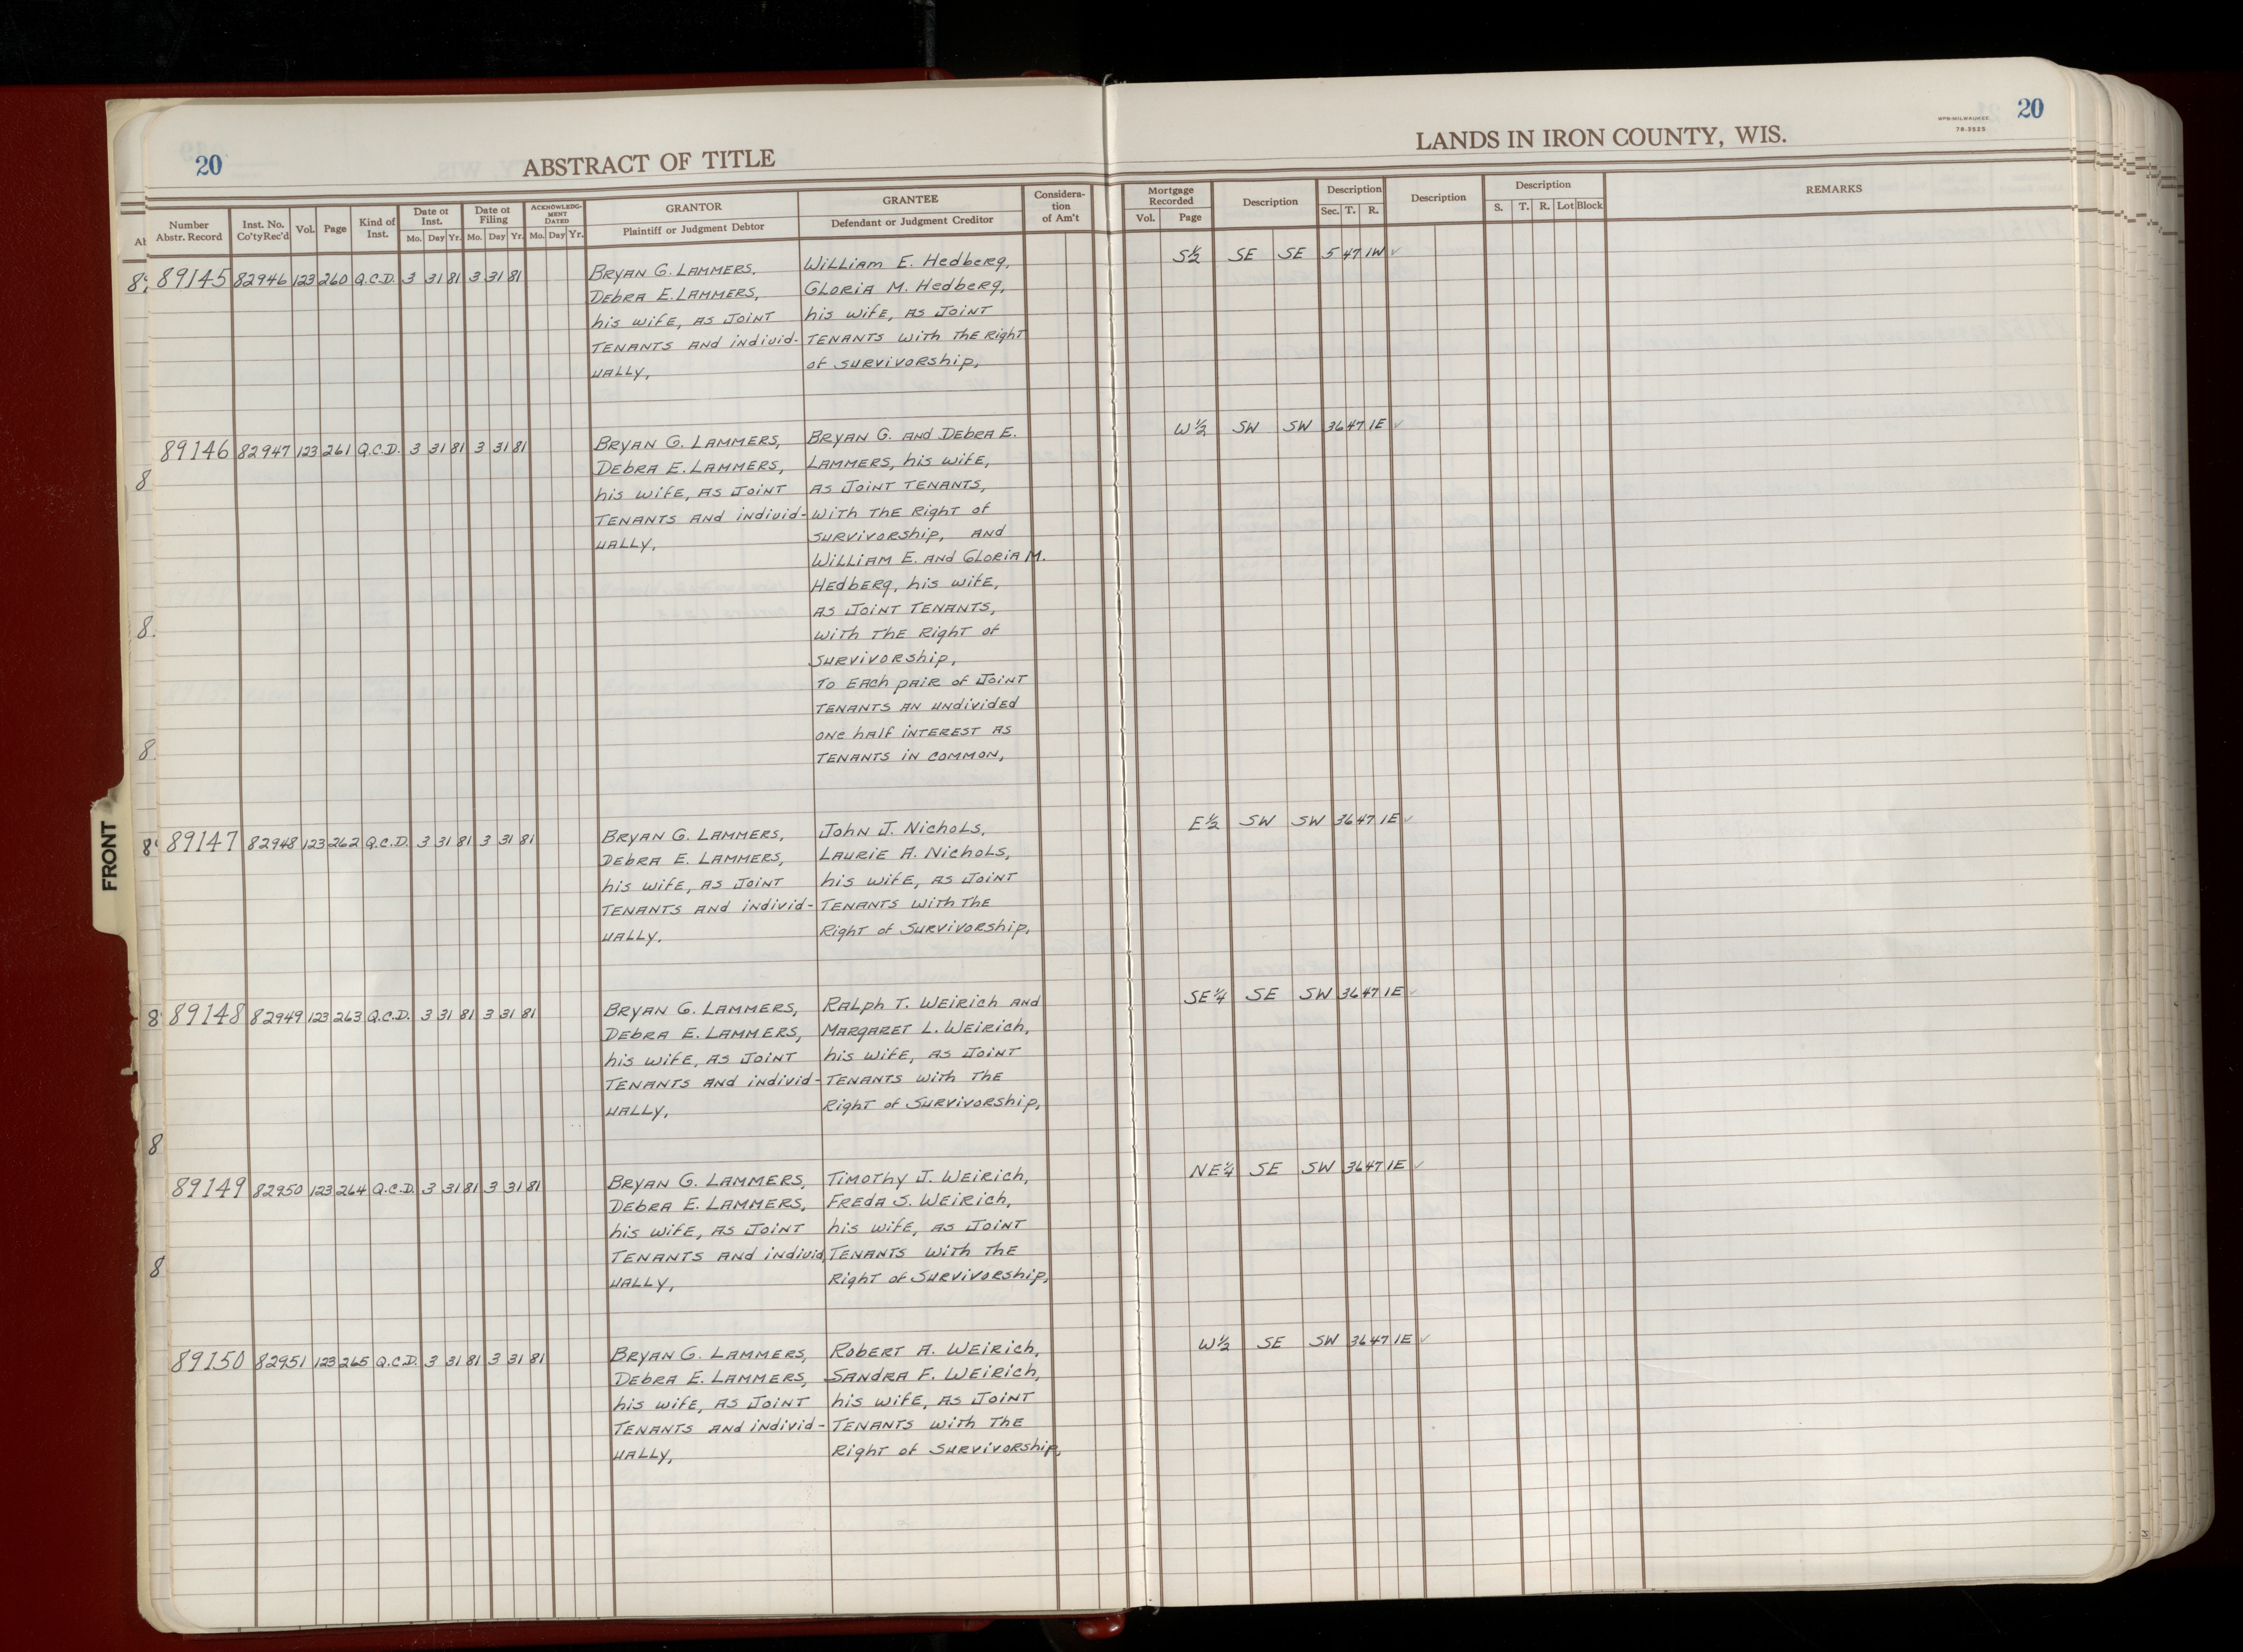 20
ABSTRACT OF TITLE
LANDS IN IRON COUNTY, WIS.
MPB-MILWAUKEE
78-3525
20
Number Abstr. Record | Inst. No. Co'tyRec'd | Vol. | Page | Kind of Inst. | Date of Inst. Mo. Day Yr. | Date of Filing Mo. Day Yr. | ACKNOWLEDGMENT DATED Mo. Day Yr. | GRANTOR Plaintiff or Judgment Debtor | GRANTEE Defendant or Judgment Creditor | Consideration of Am't | Mortgage Recorded Vol. Page | Description | Description Sec. T. R. | Description | Description S. T. R. Lot Block | REMARKS
89145 82946 123 260 Q.C.D. 3 31 81 3 31 81 BRYAN G. LAMMERS, William E. Hedberg, S½ SE SE 5 47 1W ✓
DEBRA E. LAMMERS, GLORIA M. Hedberg,
his wife, AS JOINT his wife, AS JOINT
TENANTS And individ- TENANTS with the Right
UALLY, of SURVIVORship,
89146 82947 123 261 Q.C.D. 3 31 81 3 31 81 BRYAN G. LAMMERS, BRYAN G. AND DEBRA E. W½ SW SW 36 47 1E ✓
DEBRA E. LAMMERS, LAMMERS, his wife,
his wife, AS JOINT AS JOINT TENANTS,
TENANTS And individ- With THE Right of
UALLY, SURVIVORship, AND
WILLIAM E. AND GLORIA M.
HEDBERG, his wife,
AS JOINT TENANTS,
with THE Right of
SURVIVORship,
TO EACH PAIR of JOINT
TENANTS AN undivided
ONE HALF INTEREST AS
TENANTS IN COMMON,
89147 82948 123 262 Q.C.D. 3 31 81 3 31 81 BRYAN G. LAMMERS, John J. Nichols, E½ SW SW 36 47 1E ✓
DEBRA E. LAMMERS, LAURIE A. Nichols,
his wife, AS JOINT his wife, AS JOINT
TENANTS And individ- TENANTS with the
UALLY. Right of Survivorship,
89148 82949 123 263 Q.C.D. 3 31 81 3 31 81 BRYAN G. LAMMERS, RALPH T. WEIRICH AND SE¼ SE SW 36 47 1E ✓
DEBRA E. LAMMERS, MARGARET L. WEIRICH,
his wife, AS JOINT his wife, AS JOINT
TENANTS And individ- TENANTS with the
UALLY, Right of Survivorship,
89149 82950 123 264 Q.C.D. 3 31 81 3 31 81 BRYAN G. LAMMERS, TIMOTHY J. WEIRICH, NE¼ SE SW 36 47 1E ✓
DEBRA E. LAMMERS, FREDA S. WEIRICH,
his wife, AS JOINT his wife, AS JOINT
TENANTS And individ, TENANTS with the
UALLY, Right of Survivorship,
89150 82951 123 265 Q.C.D. 3 31 81 3 31 81 BRYAN G. LAMMERS, ROBERT A. WEIRICH, W½ SE SW 36 47 1E ✓
DEBRA E. LAMMERS, SANDRA F. WEIRICH,
his wife, AS JOINT his wife, AS JOINT
TENANTS And individ- TENANTS with the
UALLY, Right of Survivorship,
FRONT